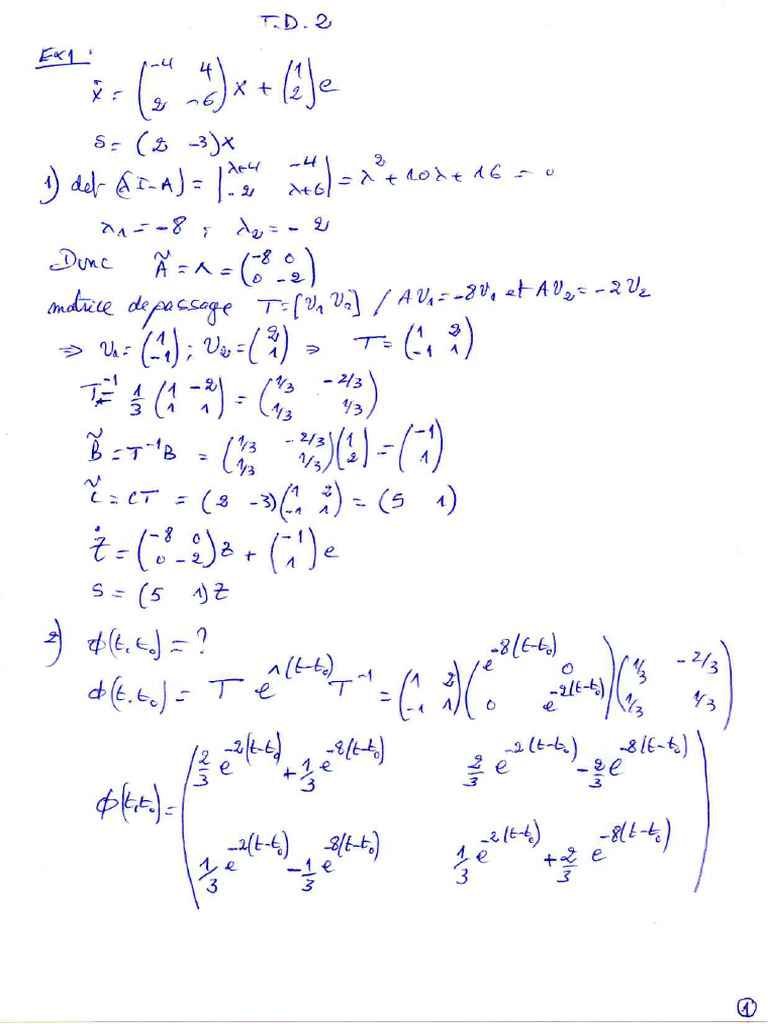 T.D.2
Ex1:
ẋ = (-4 4 ; 2 -6) x + (1 ; 2) e
s = (2 -3)x
1) det (λI-A) = |λ+4 -4 ; -2 λ+6| = λ² + 10λ + 16 = 0
λ1 = -8 ; λ2 = -2
Donc Ã = Λ = (-8 0 ; 0 -2)
matrice de passage T = [V1 V2] / AV1 = -8V1 et AV2 = -2V2
⇒ V1 = (1 ; -1) ; V2 = (2 ; 1) ⇒ T = (1 2 ; -1 1)
T⁻¹ = 1/3 (1 -2 ; 1 1) = (1/3 -2/3 ; 1/3 1/3)
B̃ = T⁻¹B = (1/3 -2/3 ; 1/3 1/3)(1 ; 2) = (-1 ; 1)
C̃ = CT = (2 -3)(1 2 ; -1 1) = (5 1)
Ż = (-8 0 ; 0 -2) Z + (-1 ; 1) e
s = (5 1)Z
2) ϕ(t,t₀) = ?
ϕ(t.t₀) = T e^Λ(t-t₀) T⁻¹ = (1 2 ; -1 1)(e^-8(t-t₀) 0 ; 0 e^-2(t-t₀))(1/3 -2/3 ; 1/3 1/3)
ϕ(t,t₀) = (2/3 e^-2(t-t₀) + 1/3 e^-8(t-t₀) 2/3 e^-2(t-t₀) - 2/3 e^-8(t-t₀) ; 1/3 e^-2(t-t₀) - 1/3 e^-8(t-t₀) 1/3 e^-2(t-t₀) + 2/3 e^-8(t-t₀))
1